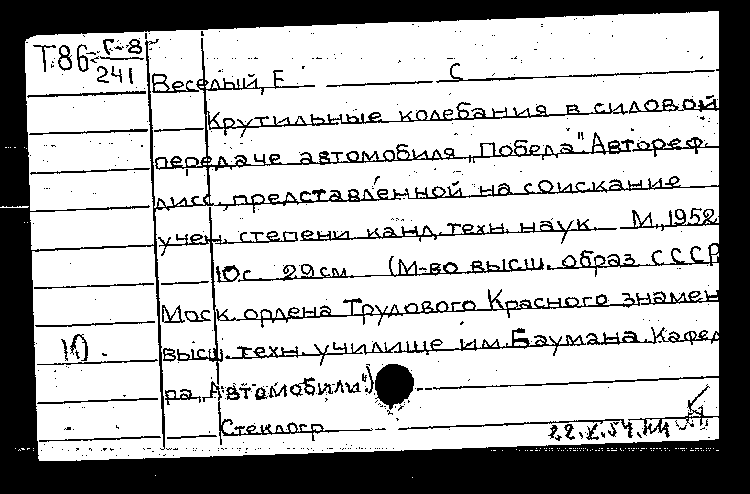 Т86 Г-8
241
Веселый, Е С
Крутильные колебания в силовой
передаче автомобиля „Победа". Автореф.
дисс., представленной на соискание
учен. степени канд. техн. наук. М., 1952
10с. 29см. (М-во высш. образ СССР
Моск. ордена Трудового Красного знамен
10. высш. техн. училище им. Баумана. Кафед
ра „Автомобили".)
Стеклогр
22.X.54.